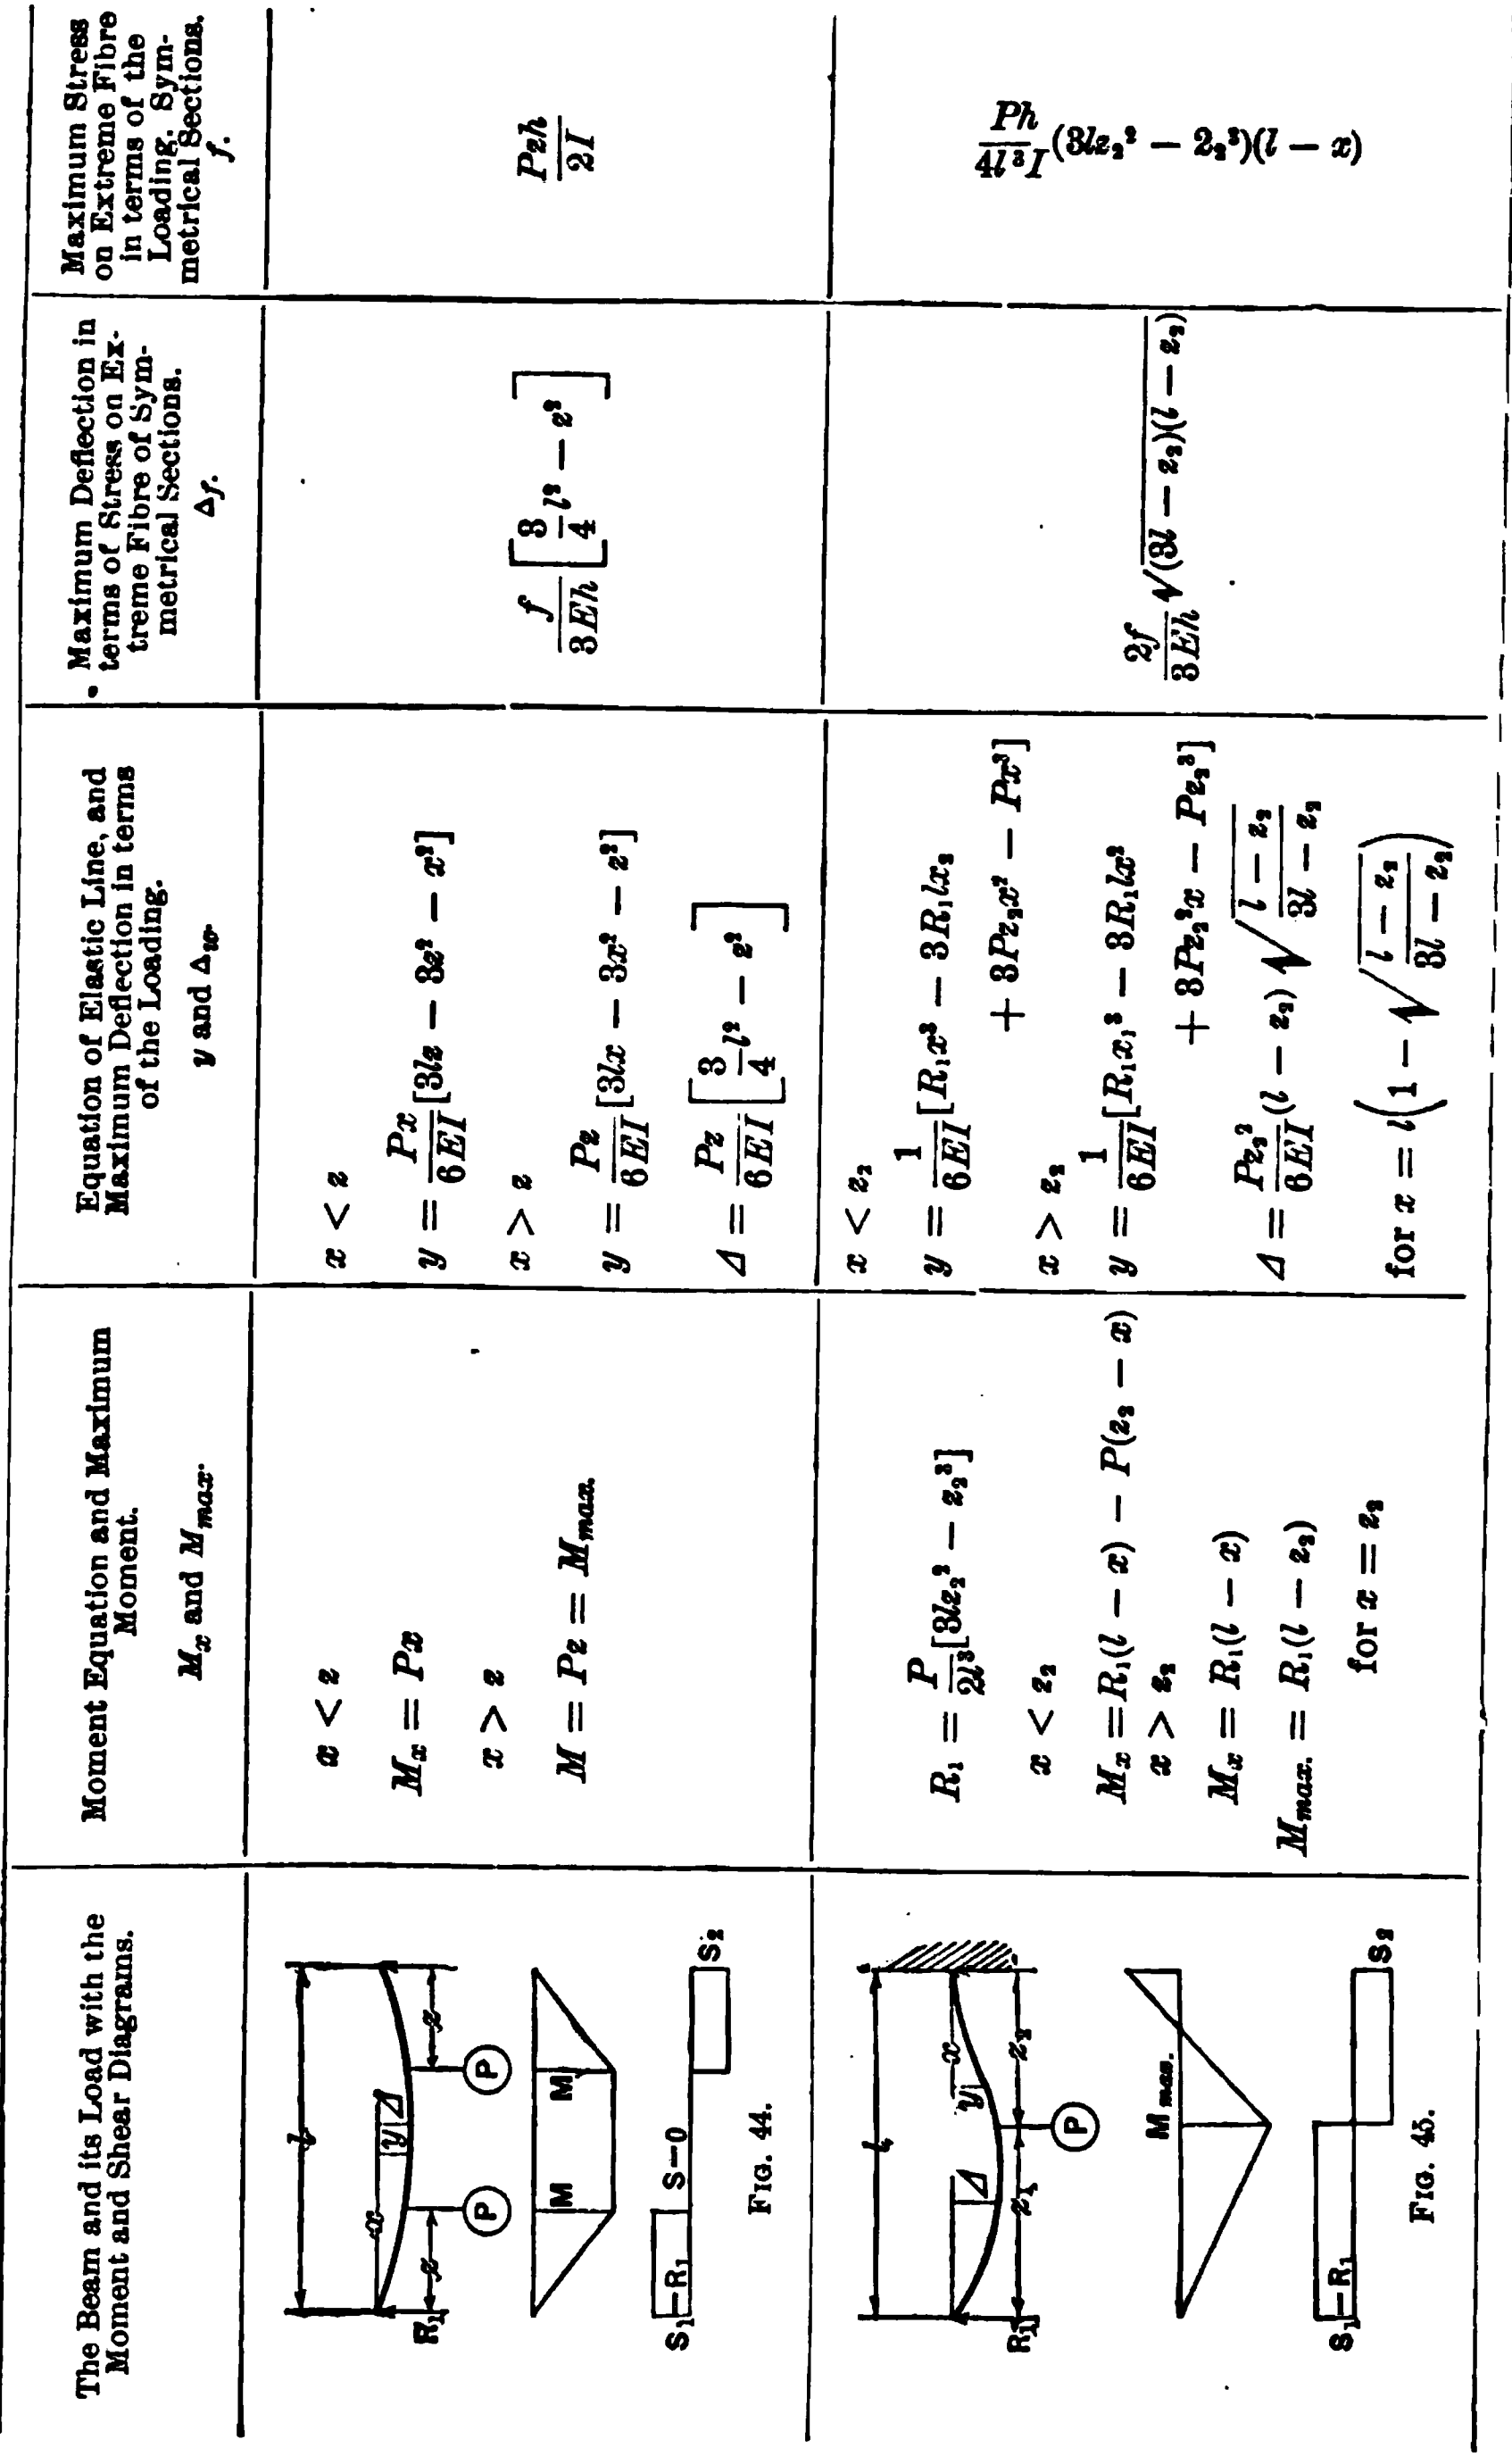 The Beam and its Load with the
Moment and Shear Diagrams.
Moment Equation and Maximum
Moment.
M_x and M_max.
Equation of Elastic Line, and
Maximum Deflection in terms
of the Loading.
y and Δ_w.
Maximum Deflection in
terms of Stress on Ex-
treme Fibre of Sym-
metrical Sections.
Δ_f.
Maximum Stress
on Extreme Fibre
in terms of the
Loading. Sym-
metrical Sections.
f.
l
x
y Δ
R₁
z z
P P
M M
S₁—R₁ S—0 S₂
FIG. 44.
x < z
M_x = Px
x > z
M = Pz = M_max.
x < z
y = Px/6EI [3lz − 3z² − x²]
x > z
y = Pz/6EI [3lx − 3x² − z²]
Δ = Pz/6EI [3/4 l² − z²]
f/3Eh [3/4 l² − z²]
Pzh/2I
l
x
Δ y
R₁ z₁ z₂
P
M max.
S₁—R₁ S₂
FIG. 45.
R₁ = P/2l³ [3lz₂² − z₂³]
x < z₂
M_x = R₁(l − x) − P(z₂ − x)
x > z₂
M_x = R₁(l − x)
M_max. = R₁(l − z₂)
for x = z₂
x < z₂
y = 1/6EI [R₁x³ − 3R₁lx₂
+ 3Pz₂x² − Px³]
x > z₂
y = 1/6EI [R₁x₁³ − 3R₁lx²
+ 3Pz₂²x − Pz₂³]
Δ = Pz₂²/6EI (l − z₂) √(l − z₂/3l − z₂)
for x = l(1 − √(l − z₂/3l − z₂))
2f/3Eh √(3l − z₂)(l − z₂)
Ph/4l³I (3lz₂² − 2₂³)(l − x)